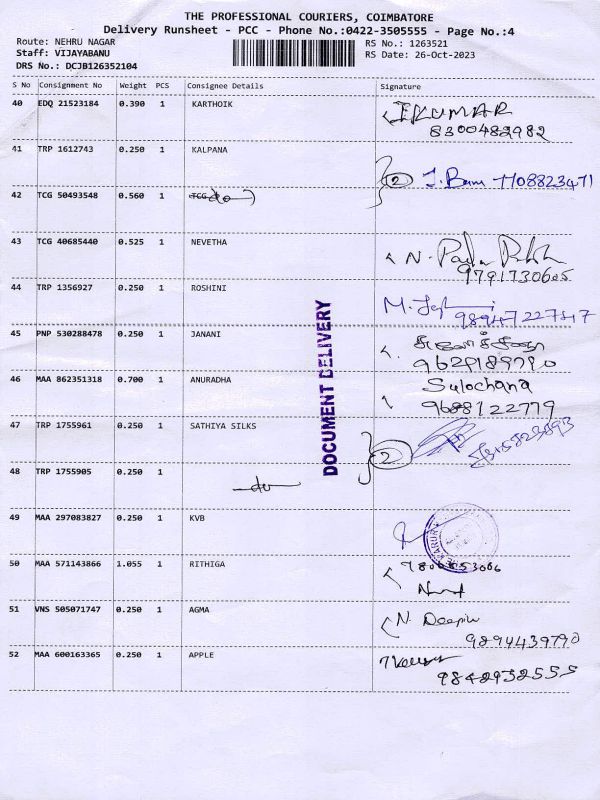 THE PROFESSIONAL COURIERS, COIMBATORE
Delivery Runsheet - PCC - Phone No.:0422-3505555 - Page No.:4
Route: NEHRU NAGAR RS No.: 1263521
Staff: VIJAYABANU RS Date: 26-Oct-2023
DRS No.: DCJB126352104
S No Consignment No Weight PCS Consignee Details Signature
40 EDQ 21523184 0.390 1 KARTHOIK
JKUMAR
8300482982
41 TRP 1612743 0.250 1 KALPANA
2 7708823471
42 TCG 50493548 0.560 1 TCG do
43 TCG 40685440 0.525 1 NEVETHA
N.
9791730605
44 TRP 1356927 0.250 1 ROSHINI
M.
98947227747
45 PNP 530288478 0.250 1 JANANI
9629189790
46 MAA 862351318 0.700 1 ANURADHA Sulochana
9688122779
47 TRP 1755961 0.250 1 SATHIYA SILKS
2
48 TRP 1755905 0.250 1
do
49 MAA 297083827 0.250 1 KVB
50 MAA 571143866 1.055 1 RITHIGA
51 VNS 505071747 0.250 1 AGMA N. Deepika
9894439790
52 MAA 600163365 0.250 1 APPLE
9842932555
DOCUMENT DELIVERY